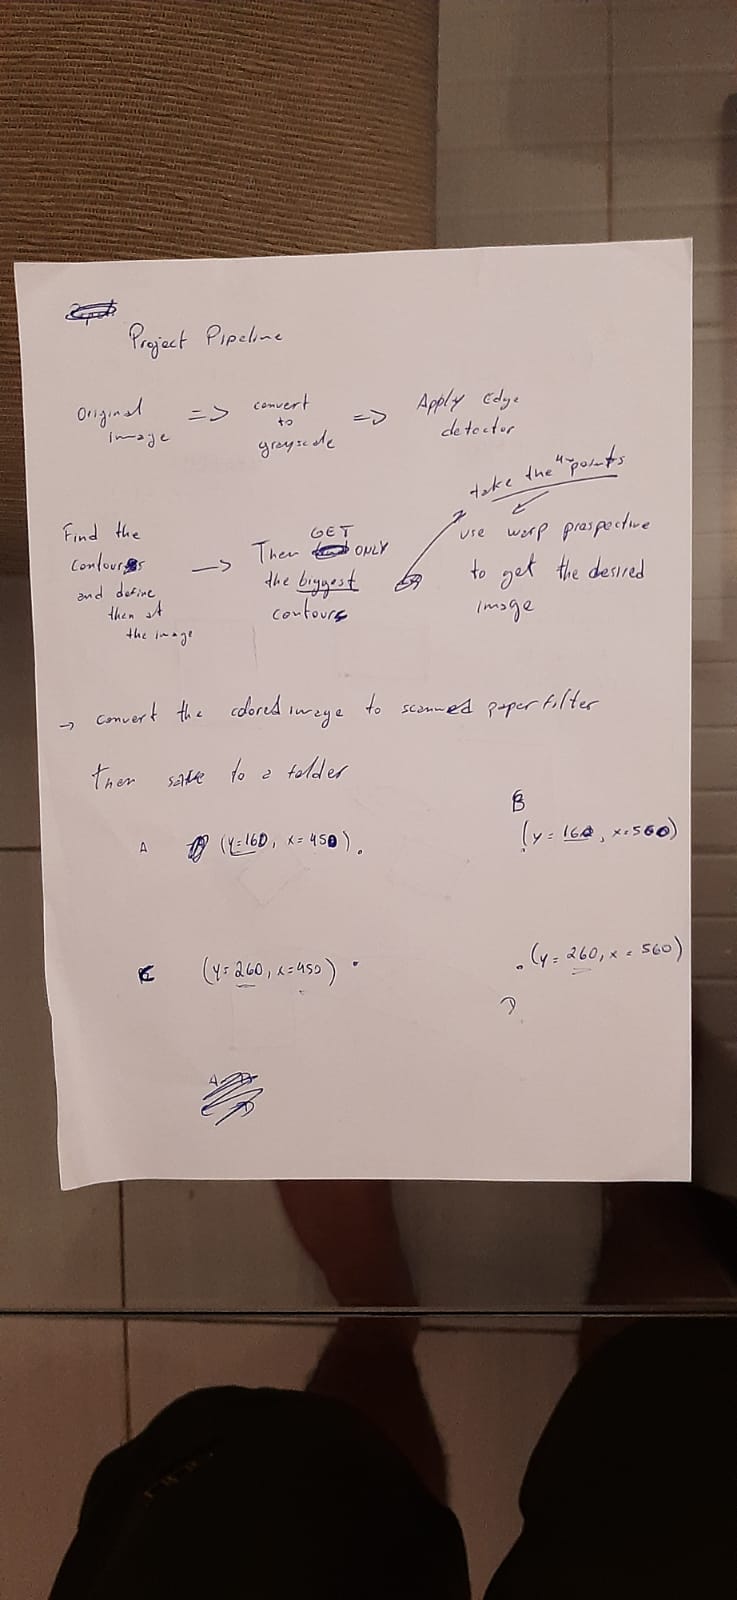 Project Pipeline
Original => convert => Apply Edge
image to detector
grayscale
take the 4 points
Find the
contours
and define
then at
the image
->
GET
Then ONLY
the biggest
contours
use warp prespective
to get the desired
image
-> convert the colored image to scanned paper filter
then save to a folder
A (y=160, x=450) .
B
(y=160, x=560)
C (y=260, x=450) .
. (y=260, x=560)